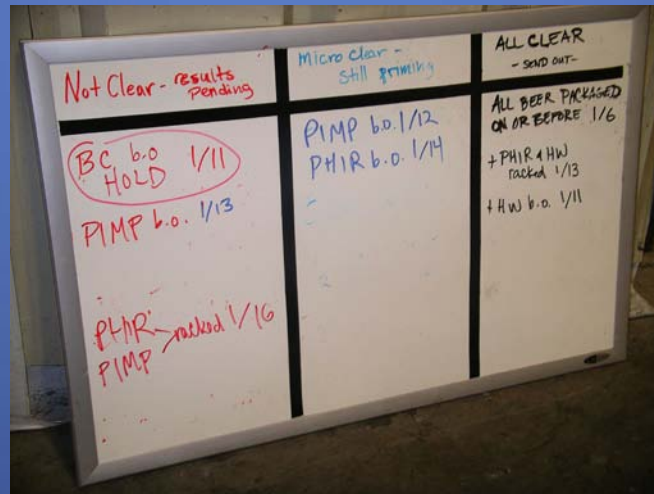 Not Clear - results
Pending
BC b.o 1/11
HOLD
PIMP b.o. 1/13
PHIR racked 1/16
PIMP
Micro Clear -
Still priming
PIMP b.o. 1/12
PHIR b.o. 1/14
ALL CLEAR
- SEND OUT -
ALL BEER PACKAGED
ON OR BEFORE 1/6
+ PHIR & HW
racked 1/13
+ HW b.o. 1/11